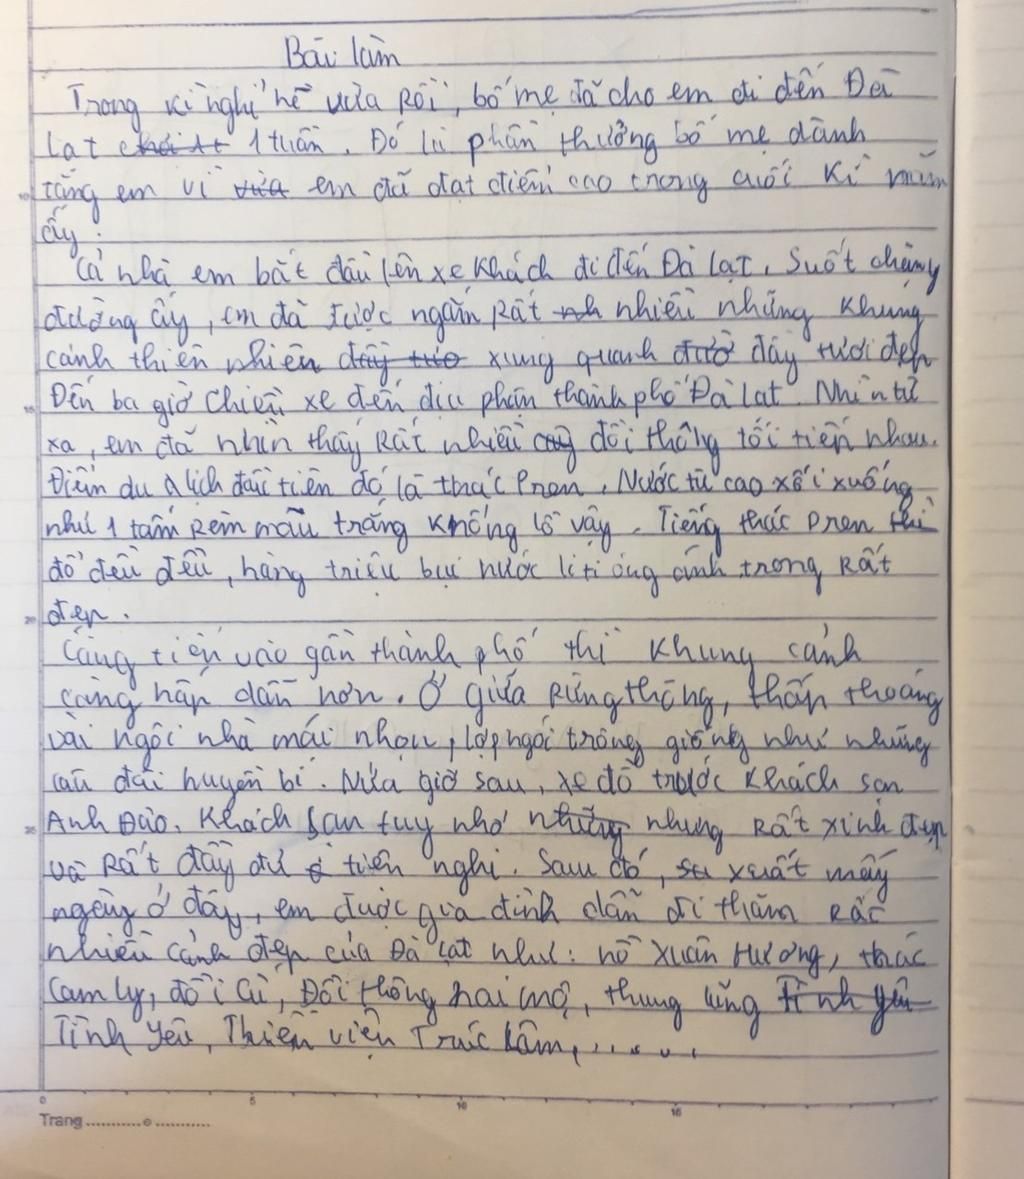 Bài làm
Trong kì nghỉ hè vừa rồi, bố mẹ đã cho em đi đến Đà
Lạt 1 tuần. Đó là phần thưởng bố mẹ dành
tặng em vì em đã đạt điểm cao trong cuối kì năm
ấy.
Cả nhà em bắt đầu lên xe khách đi đến Đà Lạt. Suốt chặng
đường ấy, em đã được ngắm rất nhiều những khung
cảnh thiên nhiên xung quanh đầy tươi đẹp
Đến ba giờ chiều xe đến địa phận thành phố Đà Lạt. Nhìn từ
xa, em đã nhìn thấy rất nhiều đồi thông tối tiến nhau.
Điểm du lịch đầu tiên đó là thác Pren. Nước từ cao xối xuống
như 1 tấm rèm màu trắng khổng lồ vậy. Tiếng thác Pren thì
đổ đều đều, hàng triệu bụi nước li ti óng ánh trong rất
đẹp.
Càng tiến vào gần thành phố thì khung cảnh
càng hấp dẫn hơn. Ở giữa rừng thông, thấp thoáng
vài ngôi nhà mái nhọn, lợp ngói trông giống như những
lâu đài huyền bí. Nửa giờ sau, xe đỗ trước khách sạn
Anh Đào. Khách sạn tuy nhỏ nhưng rất xinh đẹp
và rất đầy đủ tiện nghi. Sau đó, suốt mấy
ngày ở đây, em được gia đình dẫn đi thăm rất
nhiều cảnh đẹp của Đà Lạt như: hồ Xuân Hương, thác
Cam Ly, đồi Cù, Đồi thông hai mộ, thung lũng
Tình yêu, Thiền viện Trúc Lâm,......
Trang ........... .............
0 5 10 15
10
15
20
25